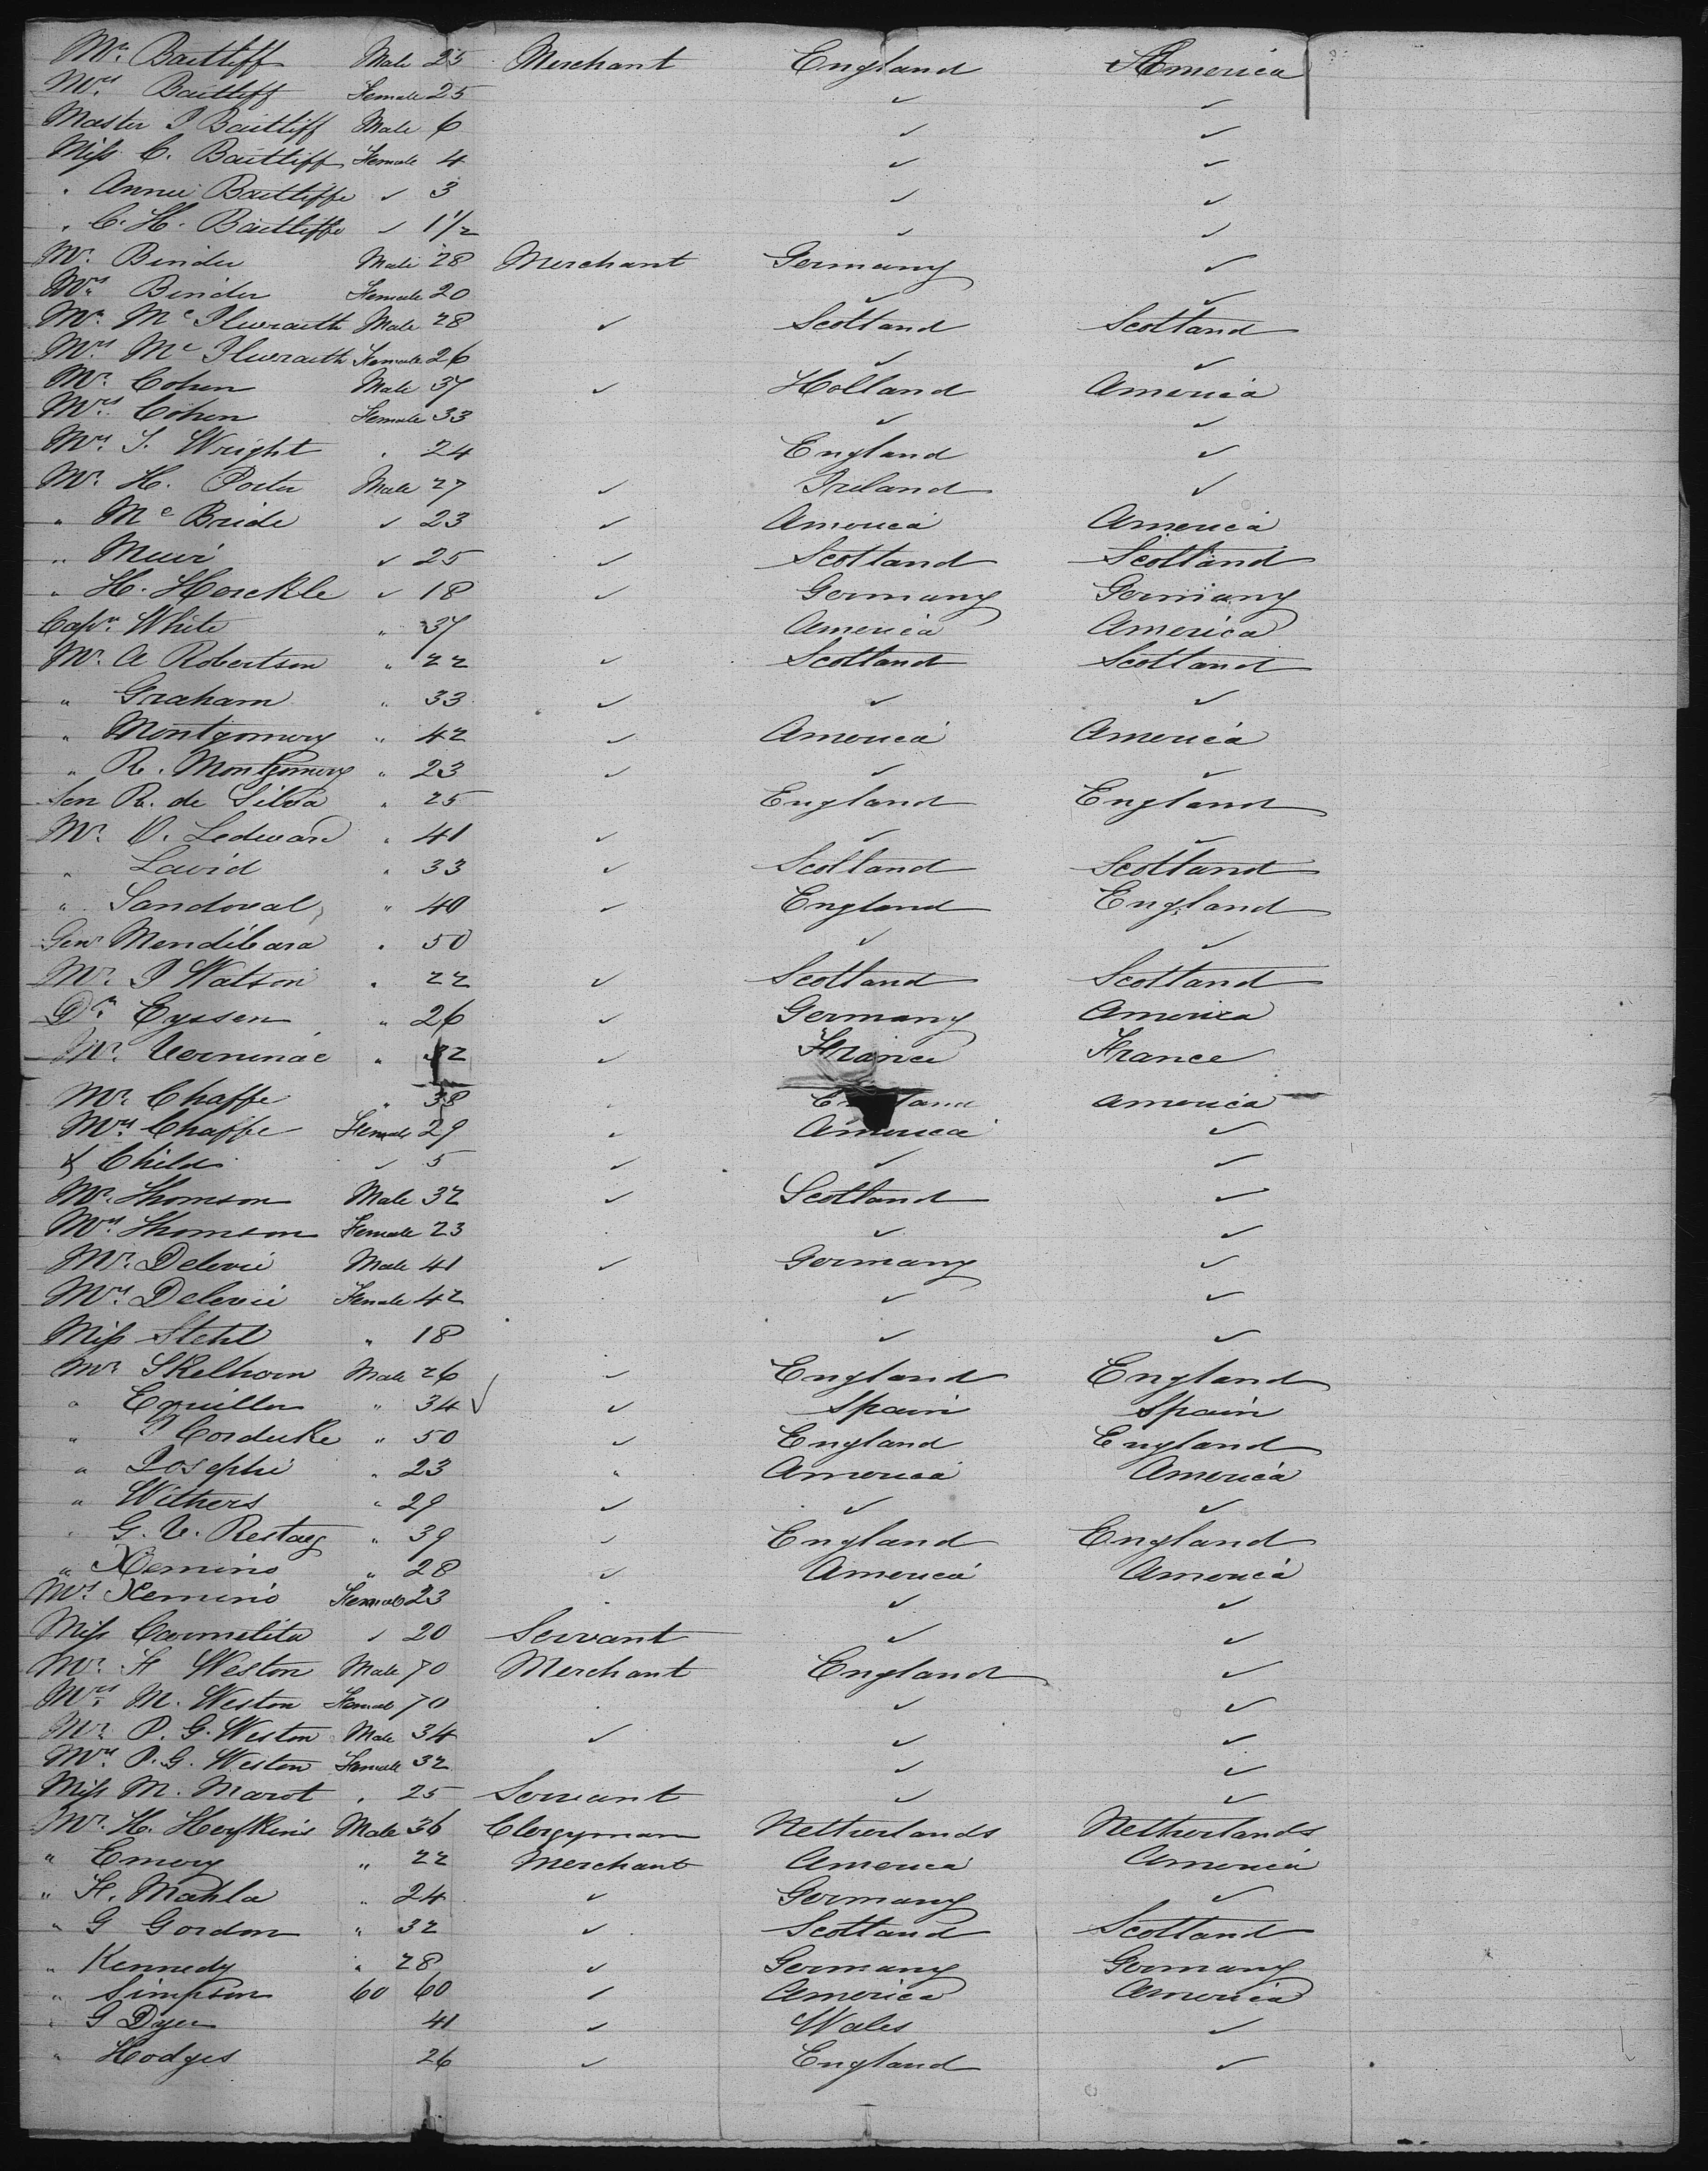 Mr. Baitliff Male 25 Merchant England America
Mrs Baitliff Female 25 ✓ ✓
Master J Baitliff Male 6 ✓ ✓
Miss C. Baitliff Female 4 ✓ ✓
" Annie Baitliffe ✓ 3 ✓ ✓
" C. H. Baitliffe ✓ 1 1/2 ✓ ✓
Mr. Binder Male 28 Merchant Germany ✓
Mrs Binder Female 20 ✓ ✓
Mr. Mc Ilwraith Male 28 ✓ Scotland Scotland
Mrs Mc Ilwraith Female 26 ✓ ✓
Mr. Cohen Male 37 ✓ Holland America
Mrs Cohen Female 33 ✓ ✓
Mrs S. Wright " 24 England ✓
Mr. H. Porter Male 27 ✓ Ireland ✓
" Mc Bride ✓ 23 ✓ America America
" Muir ✓ 25 ✓ Scotland Scotland
" H. Horckle ✓ 18 ✓ Germany Germany
Capn. White " 37 America America
Mr. A Robertson " 22 ✓ Scotland Scotland
" Graham " 33 ✓ ✓ ✓
" Montgomery " 42 ✓ America America
" R. Montgomery " 23 ✓ ✓ ✓
Sen R. de Silva " 25 England England
Mr. V. Ledward " 41 ✓ ✓ ✓
" Lavid " 33 ✓ Scotland Scotland
" Sandoval " 40 ✓ England England
Genr Mendibara " 50 ✓ ✓
Mr. J Watson " 22 ✓ Scotland Scotland
Dr. Eyssen " 26 ✓ Germany America
Mr. Verninac " 32 ✓ France France
Mr. Chaffe " 38 England America
Mrs. Chaffe Female 29 ✓ America ✓
& Child ✓ 5 ✓ ✓ ✓
Mr. Thomson Male 32 ✓ Scotland ✓
Mrs. Thomson Female 23 ✓ ✓
Mr. Delevie Male 41 ✓ Germany ✓
Mrs. Delevie Female 42 ✓ ✓
Miss Stehl " 18 ✓ ✓
Mr. Skelhorn Male 26 ✓ England England
" Equillor " 34 ✓ ✓ Spain Spain
" J Corduke " 50 ✓ England England
" Josephi " 23 " America America
" Withers " 29 ✓ ✓ ✓
" G. V. Restaey " 39 ✓ England England
" Xemino " 28 ✓ America America
Mrs Xemino Female 23 ✓ ✓
Miss Carmelita ✓ 20 Servant ✓ ✓
Mr. H Weston Male 70 Merchant England ✓
Mrs. M. Weston Female 70 ✓ ✓
Mr. P. G. Weston Male 34 ✓ ✓ ✓
Mrs. P. G. Weston Female 32 ✓ ✓
Miss M. Marot " 25 Servant ✓ ✓
Mr. H. Heyfkins Male 36 Clergyman Netherlands Netherlands
" Emory " 22 Merchant America America
" H. Mahla " 24 ✓ Germany ✓
" G Gordon " 32 ✓ Scotland Scotland
" Kennedy " 28 ✓ Germany Germany
" Simpson 60 60 ✓ America America
" G Dyer 41 ✓ Wales ✓
" Hodges 26 ✓ England ✓